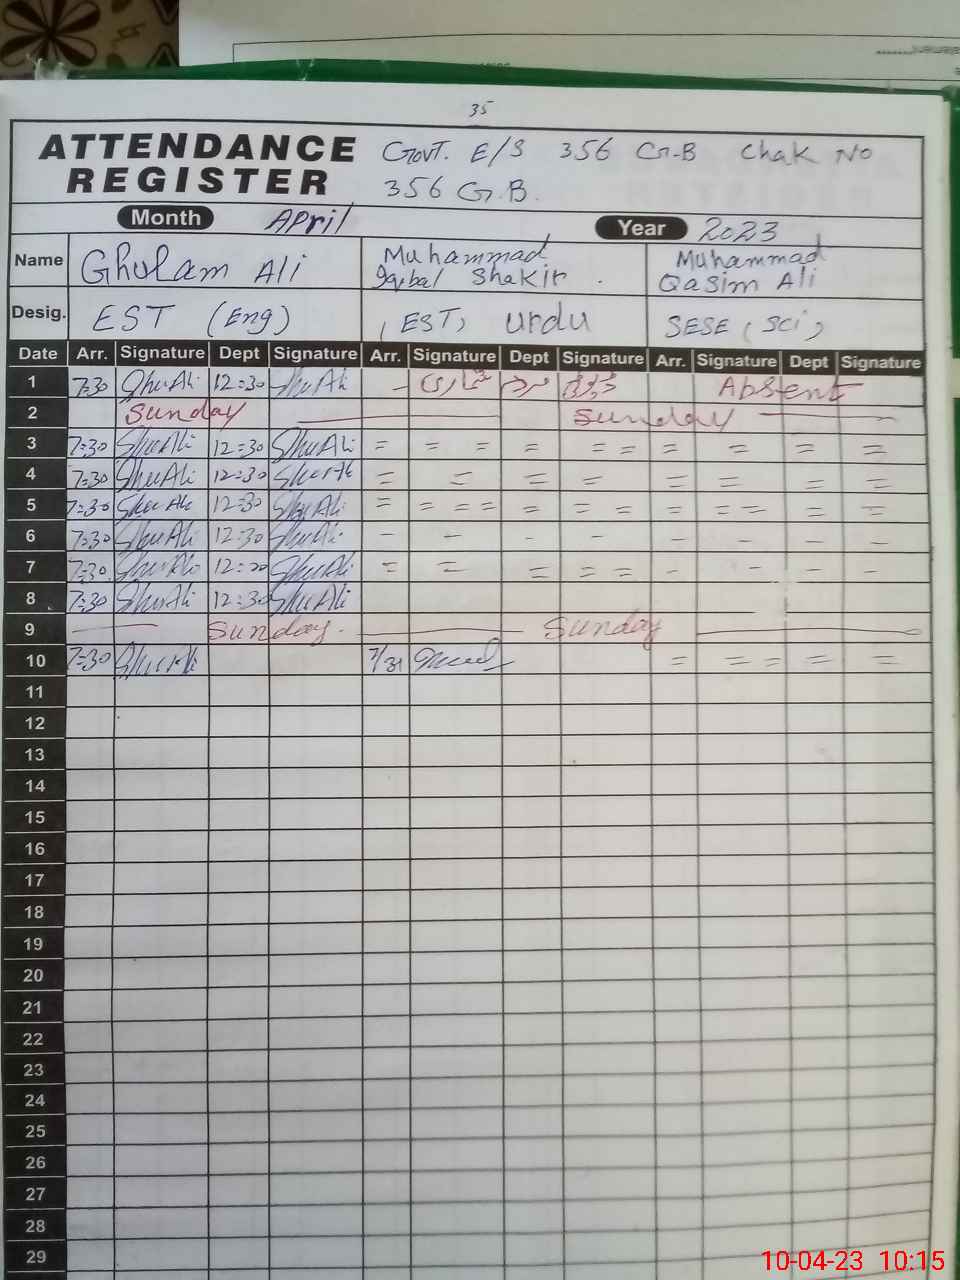 35
ATTENDANCE REGISTER
Govt. E/S 356 G.B Chak No
356 G.B.
Month April Year 2023
Name Ghulam Ali Muhammad Iqbal Shakir Muhammad Qasim Ali
Desig. EST (Eng) (EST) Urdu SESE (Sci)
Date Arr. Signature Dept Signature Arr. Signature Dept Signature Arr. Signature Dept Signature
1 7:30 12:30 مردم شماری Absent
2 Sunday Sunday
3 7:30 12:30 = = = = = = = = = =
4 7:30 12:30 = = = = = = = =
5 7:30 12:30 = = = = = = = = = = =
6 7:30 12:30 - - - - - - - -
7 7:30 = = = = = - - - -
8 7:30 12:30
9 Sunday Sunday
10 7:30 7/31 = = = = =
11
12
13
14
15
16
17
18
19
20
21
22
23
24
25
26
27
28
29
10-04-23 10:15